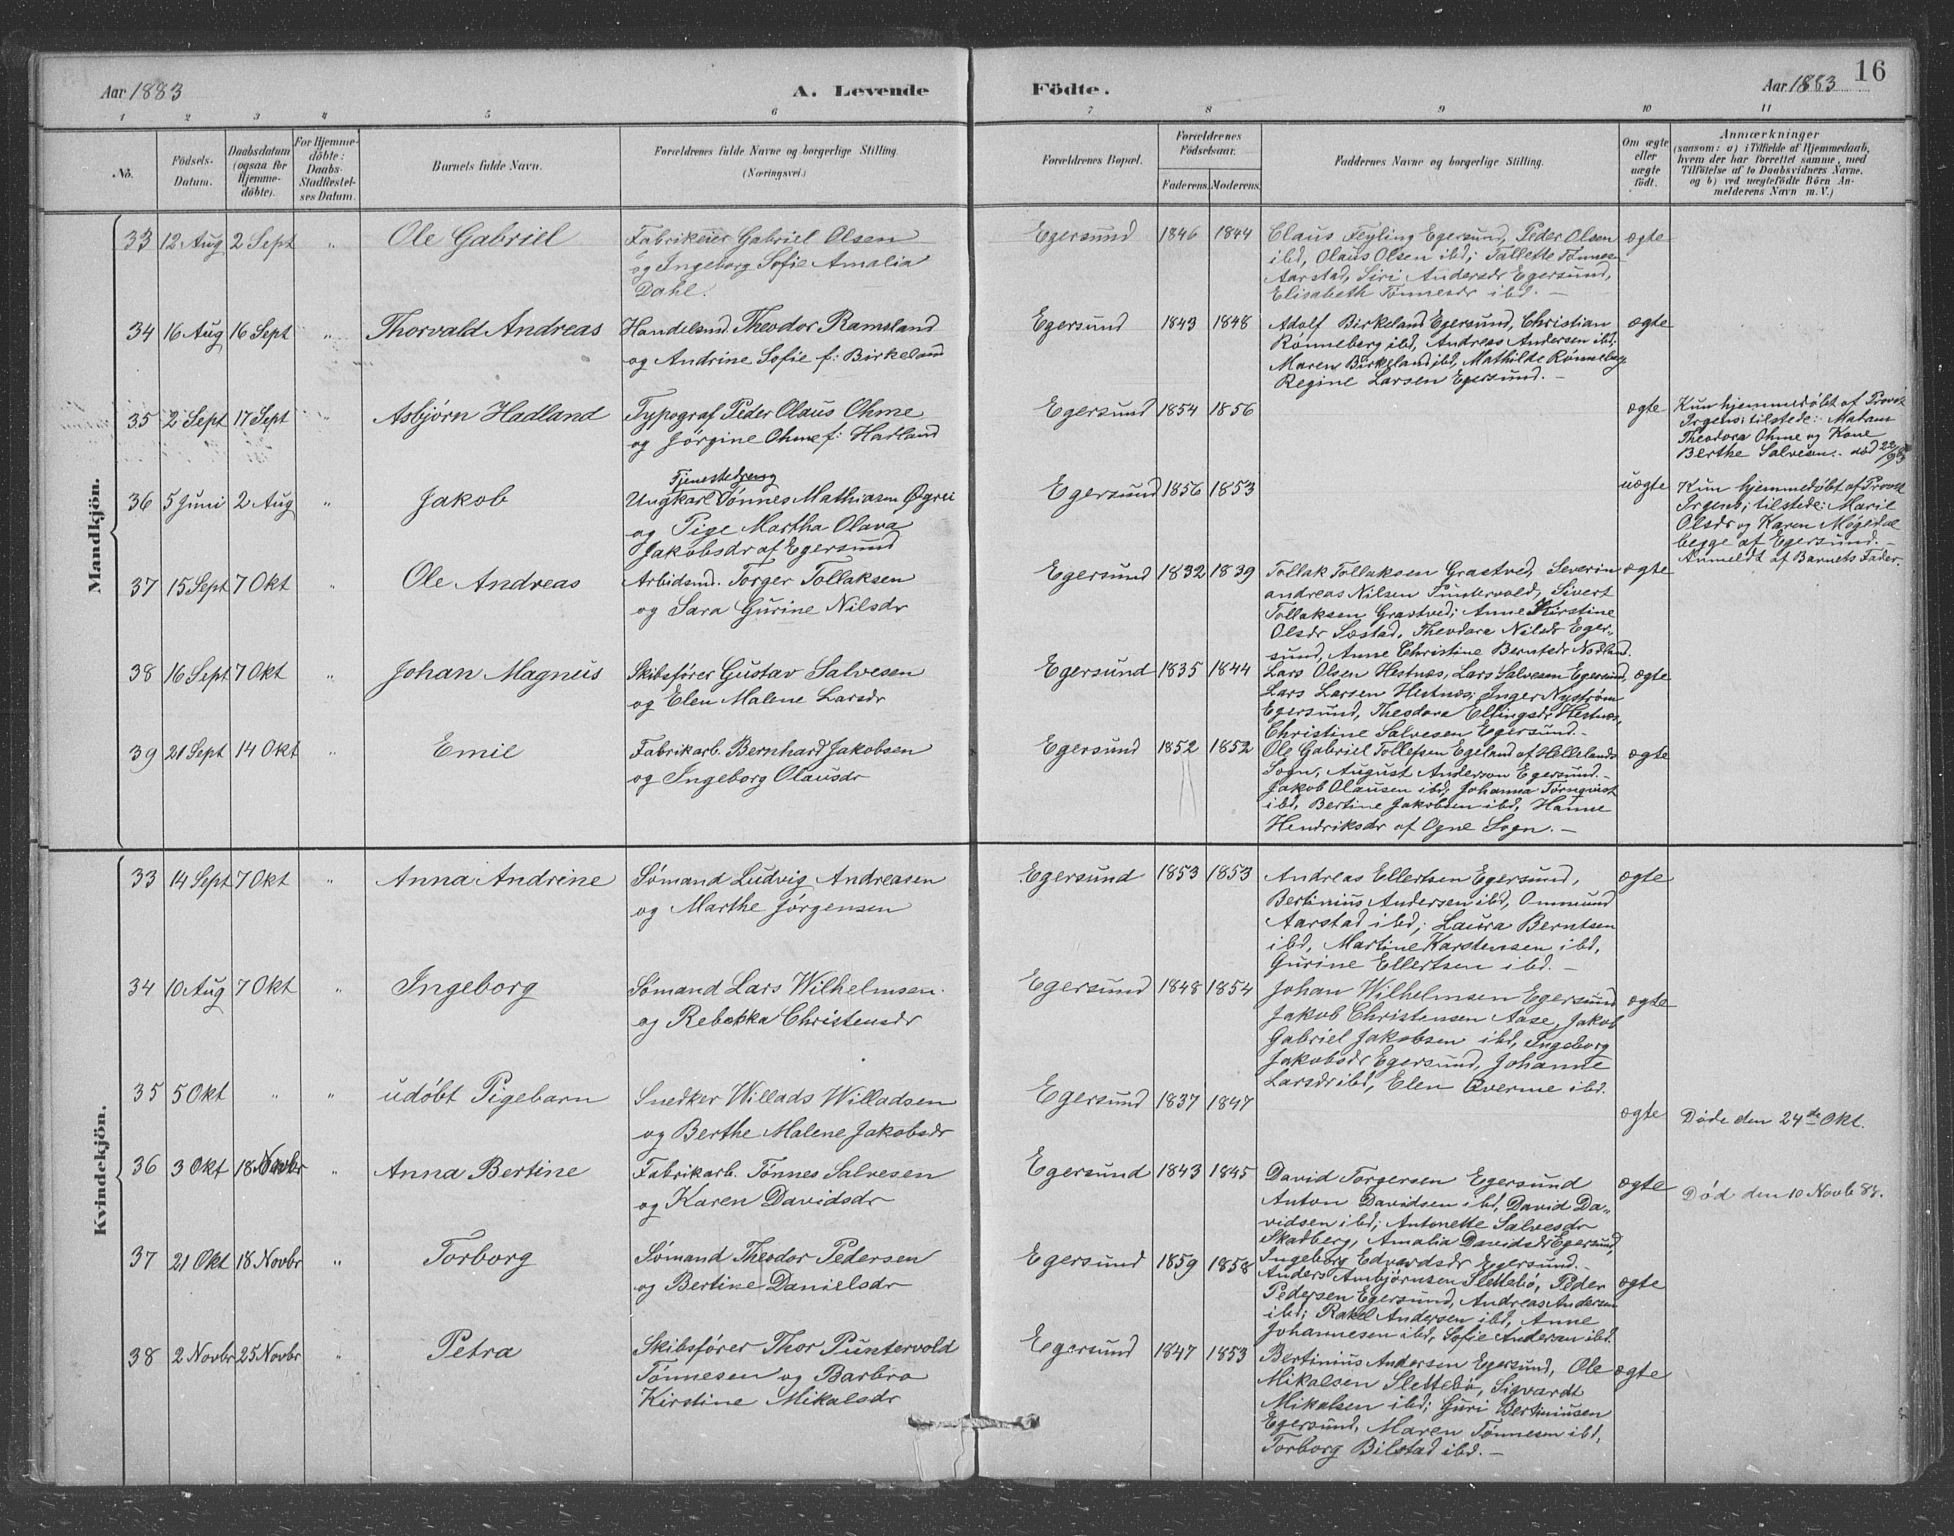 16
Aar 1883
A. Levende Födte.
Aar 1883
1 2 3 4 5 6 7 8 9 10 11
No.
Födsels-Datum.
Daabsdatum (ogsaa for Hjemme-döbte).
For Hjemme-döbte: Daabs-Stadfæstel-ses Datum.
Barnets fulde Navn.
Forældrenes fulde Navne og borgerlige Stilling. (Næringsvei.)
Forældrenes Bopæl.
Forældrenes Födselsaar.
Faderens. Moderens.
Faddernes Navne og borgerlige Stilling.
Om ægte eller uægte födt.
Anmærkninger
(saasom: a) i Tilfælde af Hjemmedaab, hvem der har forrettet samme, med Tilföielse af to Daabsvidners Navne, og b) ved uægtefödte Börn Anmelderens Navn m. V.)
Mandkjön.
33 12 Aug 2 Sept " Ole Gabriel
Fabrikeier Gabriel Olsen
og Ingeborg Sofie Amalia
Dahl.
Egersund 1846 1844
Claus Feyling Egersund, Peder Olsen
ibd, Olaus Olsen ibd; Tallette Tønnes-
Aarstad, Siri Andersdr Egersund,
Elisabeth Tønnesdr ibd. –
ægte
34 16 Aug 16 Sept " Thorvald Andreas
Handelsmd. Theodor Ramsland
og Andrine Sofie f: Birkeland
Egersund 1843 1848
Adolf Birkeland Egersund, Christian
Rønneberg ibd, Andreas Andersen ibd;
Maren Birkeland ibd, Mathilde Rønneberg
Regine Larsen Egersund. –
ægte
35 2 Sept 17 Sept " Asbjörn Hadland
Typograf Peder Olaus Ohme
og Jörgine Ohme f: Hadland
Egersund 1854 1856
ægte
Kun hjemmedöbt af Provst
Irgens; tilstede: Madam
Theodora Ohme og Kone
Berthe Salvesen. – död 22/9 83
36 5 Juni 2 Aug " Jakob
Tjenestedreng
Ungkarl Tønnes Mathiasen Øgrei
og Pige Martha Olava
Jakobsdr af Egersund
Egersund 1856 1853
uægte
Kun hjemmedøbt af Provst
Irgens; tilstede: Marie
Olsdr og Karen Møgedal
begge af Egersund. –
Anmeldt af Barnets Fader.
37 15 Sept 7 Okt " Ole Andreas
Arbidsmd. Torger Tollaksen
og Sara Gurine Nilsdr
Egersund 1832 1839
Tollak Tollaksen Grastved, Severin
andreas Nilsen Puntervold, Sivert
Tollaksen Grastved; Anne Kirstine
Olsdr Sæstad, Theodora Nilsdr Eger-
sund, Anne Christine Berntsdr Nodland.
ægte
38 16 Sept 7 Okt " Johan Magnus
Skibsfører Gustav Salvesen
og Elen Malene Larsdr
Egersund 1835 1844
Lars Olsen Hestnæs, Lars Salvesen Egersund,
Lars Larsen Hestnæs; Inger Nystrøm
Egersund, Theodora Ellingsdr Hestnæs,
Christine Salvesen Egersund. –
ægte
39 21 Sept 14 Okt " Emil
Fabrikarb. Bernhard Jakobsen
og Ingeborg Olausdr
Egersund 1852 1852
Ole Gabriel Tollefsen Egeland af Hellelands
Sogn, August Anderson Egersund. –
Jakob Olausen ibd; Johanna Tørnqvist
ibd, Bertine Jakobsen ibd, Hanne
Hendriksdr af Ogne Sogn. –
ægte
Kvindekjön.
33 14 Sept 7 Okt " Anna Andrine
Sømand Ludvig Andreasen
og Marthe Jørgensen
Egersund 1853 1853
Andreas Ellertsen Egersund,
Bertinius Andersen ibd, Ommund
Aarstad ibd; Laura Berntsen
ibd, Martine Karstensen ibd,
Gurine Ellertsen ibd. –
ægte
34 10 Aug 7 Okt " Ingeborg
Sømand Lars Wilhelmsen
og Rebekka Christensdr
Egersund 1848 1854
Johan Wilhelmsen Egersund
Jakob Christensen Aase, Jakob
Gabriel Jakobsen ibd, Ingeborg
Jakobsdr Egersund, Johanne
Larsdr ibd, Elen Qverme ibd.
ægte
35 5 Okt " " udøbt Pigebarn
Snedker Willads Willadsen
og Berthe Malene Jakobsdr
Egersund 1837 1847
ægte
Døde den 24de Okt.
36 3 Okt 18 Novbr " Anna Bertine
Fabrikarb. Tønnes Salvesen
og Karen Davidsdr
Egersund 1843 1845
David Torgersen Egersund
Anton Davidsen ibd, David Da-
vidsen ibd; Antonette Salvesdr
Skadberg, Amalia Davidsdr Egersund,
Ingeborg Edvardsdr Egersund. –
ægte
Død den 10 Novb 84.
37 21 Okt 18 Novbr " Torborg
Sømand Theodor Pedersen
og Bertine Danielsdr
Egersund 1859 1858
Anders Ambjørnsen Slettebø, Peder
Pedersen Egersund, Andreas Andersen
ibd; Rakel Andersen ibd, Anne
Johannesen ibd, Sofie Andersen ibd.
ægte
38 2 Novbr 25 Novbr " Petra
Skibsfører Thor Puntervold
Tønnesen og Barbra
Kirstine Mikalsdr
Egersund 1847 1853
Bertinius Andersen Egersund, Ole
Mikalsen Slettebø, Sigvardt
Mikalsen ibd; Guri Bertiniusen
Egersund, Maren Tønnesen ibd,
Torborg Bilstad ibd. –
ægte